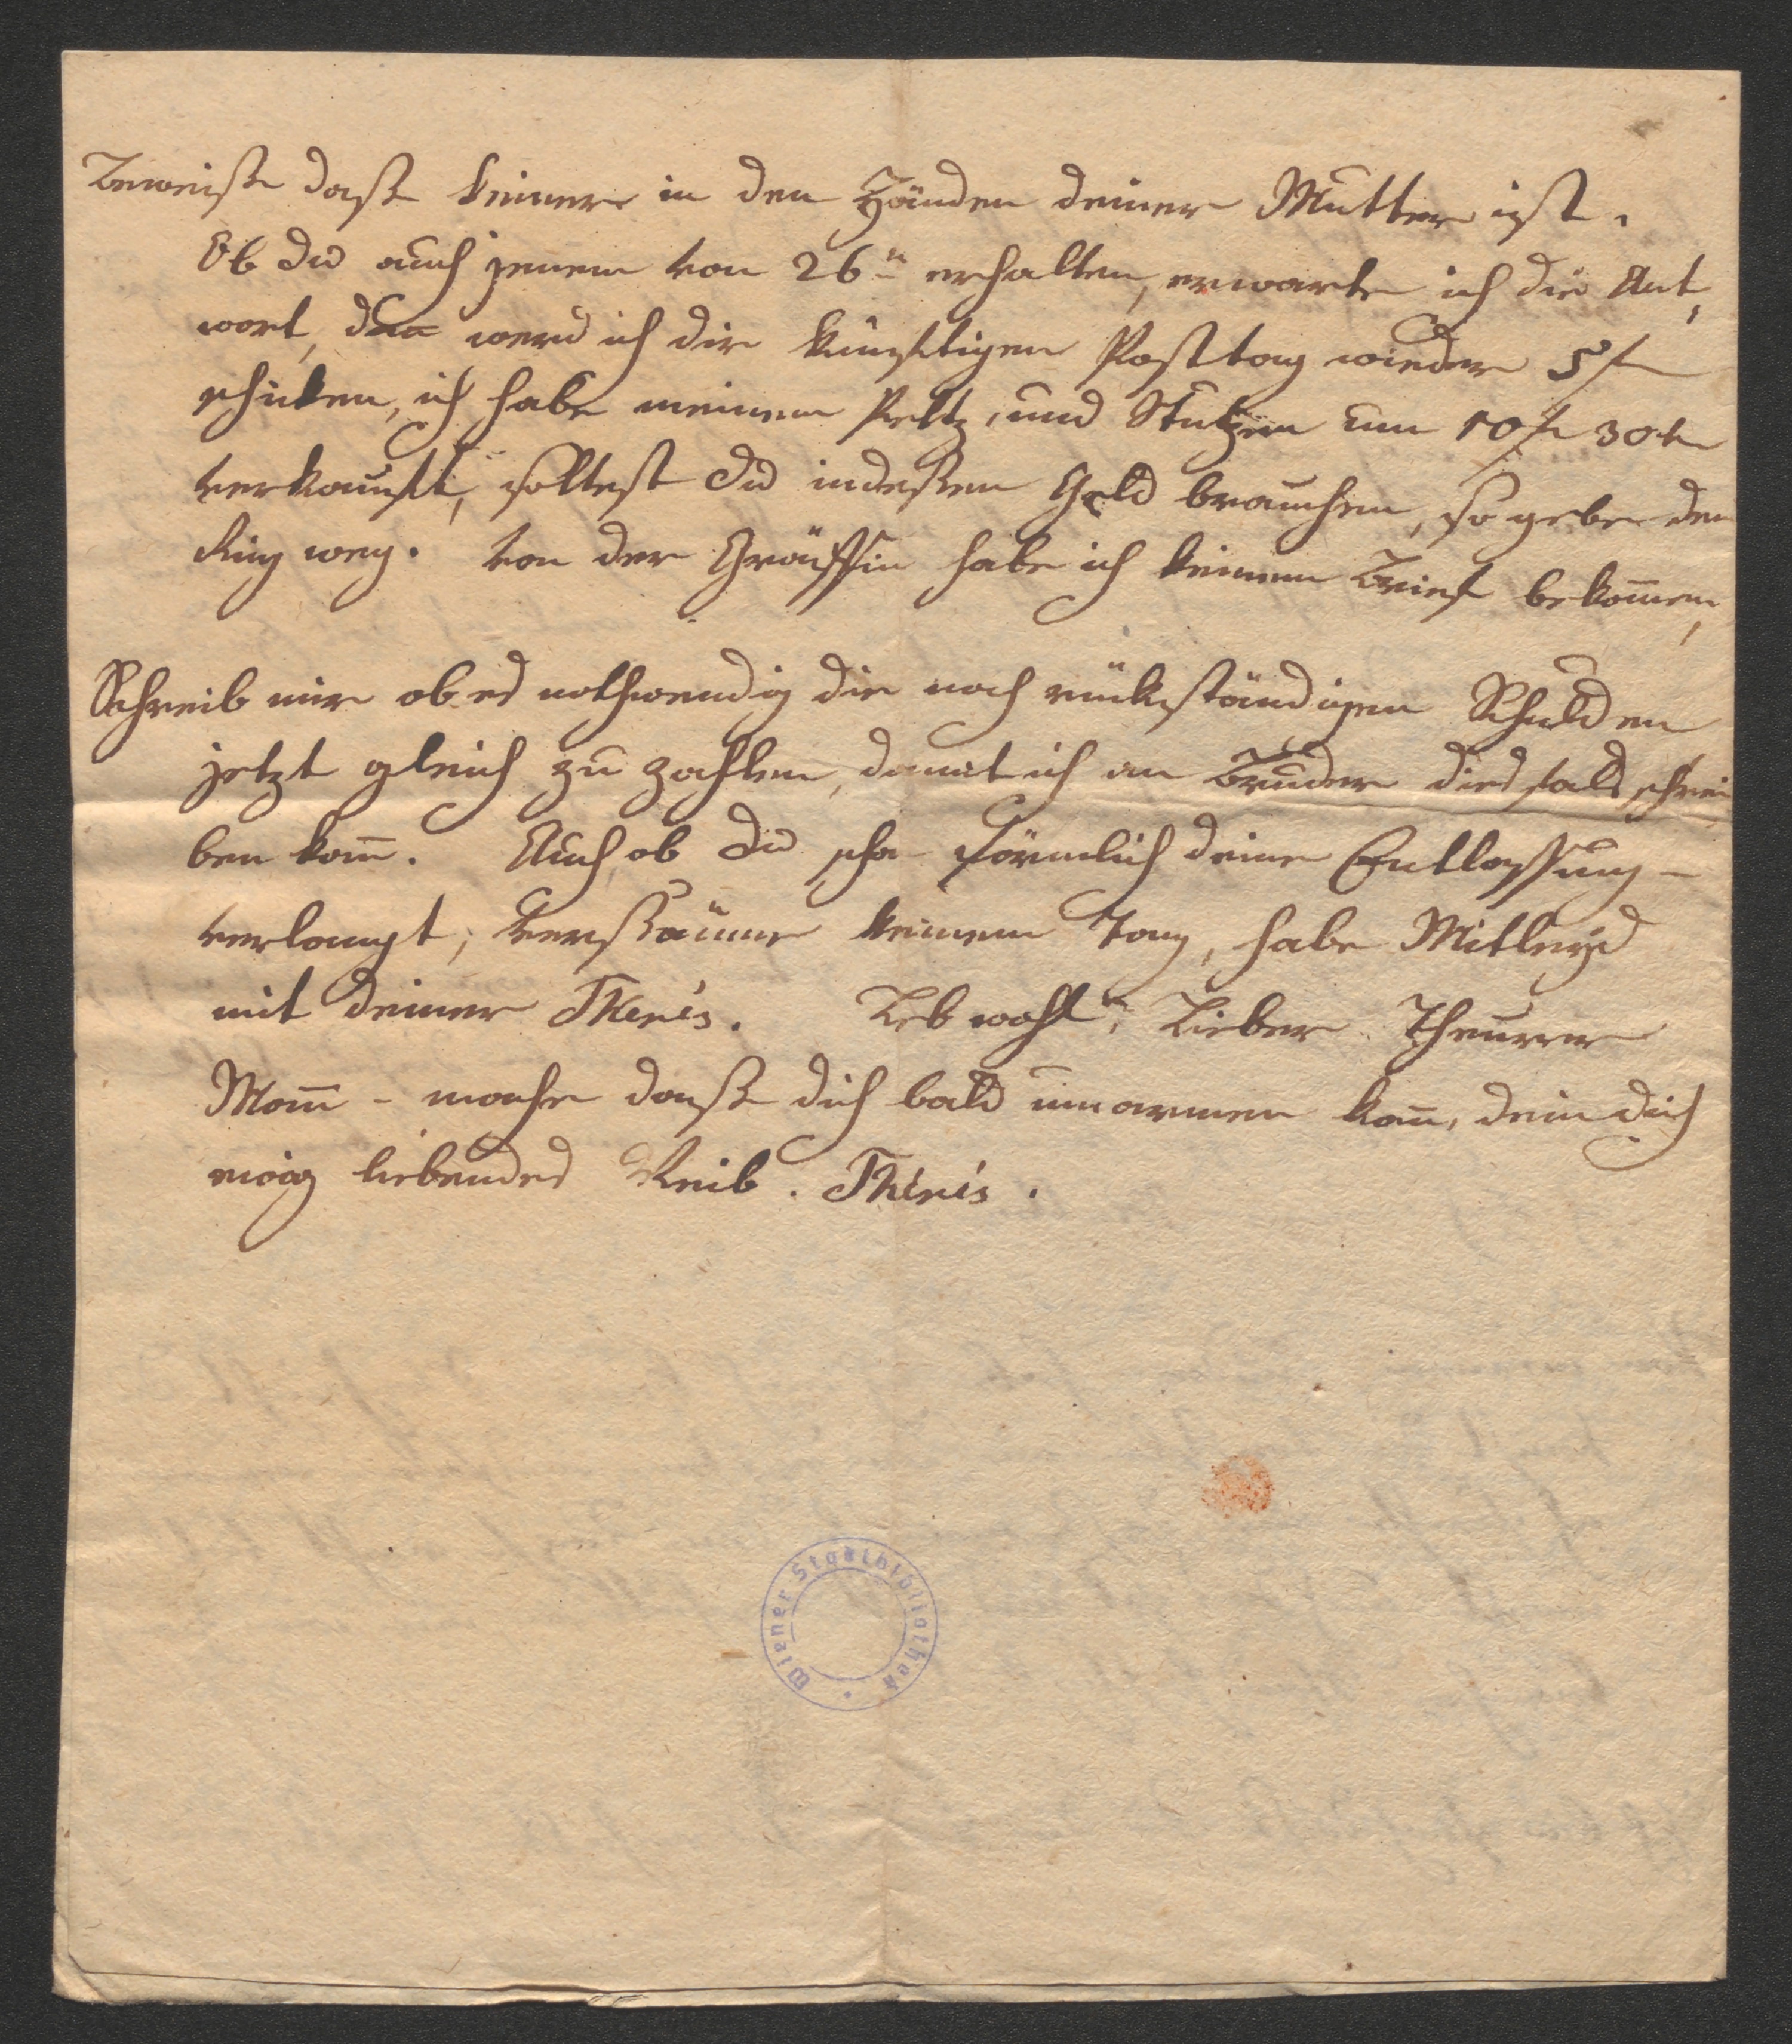 Beweiße daße keiner in den Händen deiner Mutter ist.
Ob du auch jenen von 26ⁿ erhalten, erwarte ich die Ant,
wort, werd ich dir künftigen Posttag wieder 5 f
schicken, ich habe meinen Peltz, und Stutzen um 10 f 30 k
verkauft, solltest du indeßen Geld brauchen, so gebe den
Ring weg. Von der Gräffin habe ich keinen Brief bekom̄en,
Schreib mir ob es nothwendig die noch rückständigen Schulden
jetzt gleich zu zahlen, damit ich an Bruder diesfals schrei
ben kan̄. Auch ob du förmlich deine Entlassung –
verlangt, verßäume keinen Tag, habe Mitleyd
mit deiner Theres. Leb wohl, Lieber Theurer
Man̄ – mache daße dich bald umarmen kan̄, dein dich
ewig liebendes Weib. Theres.
Wiener Stadtbibliothek